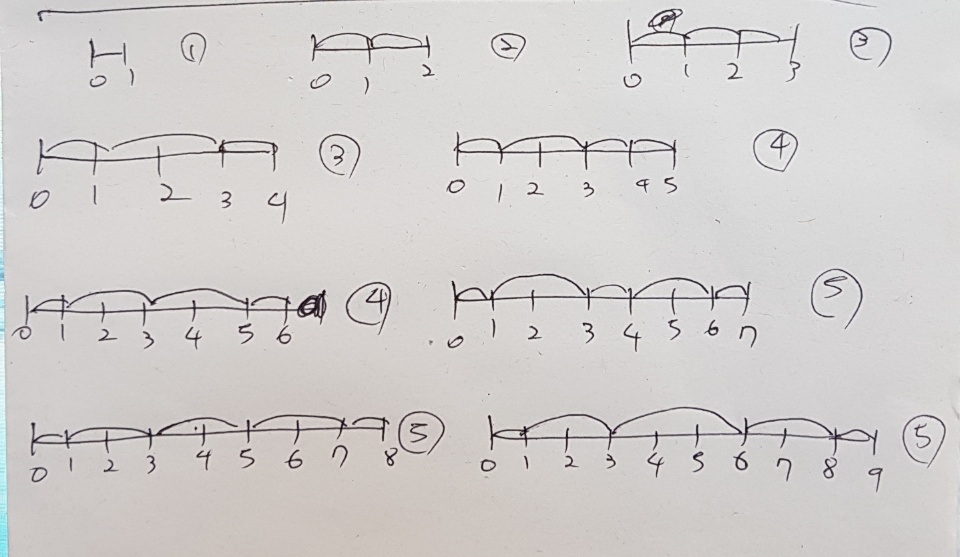 0 1 ① 0 1 2 ② 0 1 2 3 ③
0 1 2 3 4 ③ 0 1 2 3 4 5 ④
0 1 2 3 4 5 6 ④ 0 1 2 3 4 5 6 7 ⑤
0 1 2 3 4 5 6 7 8 ⑤ 0 1 2 3 4 5 6 7 8 9 ⑤